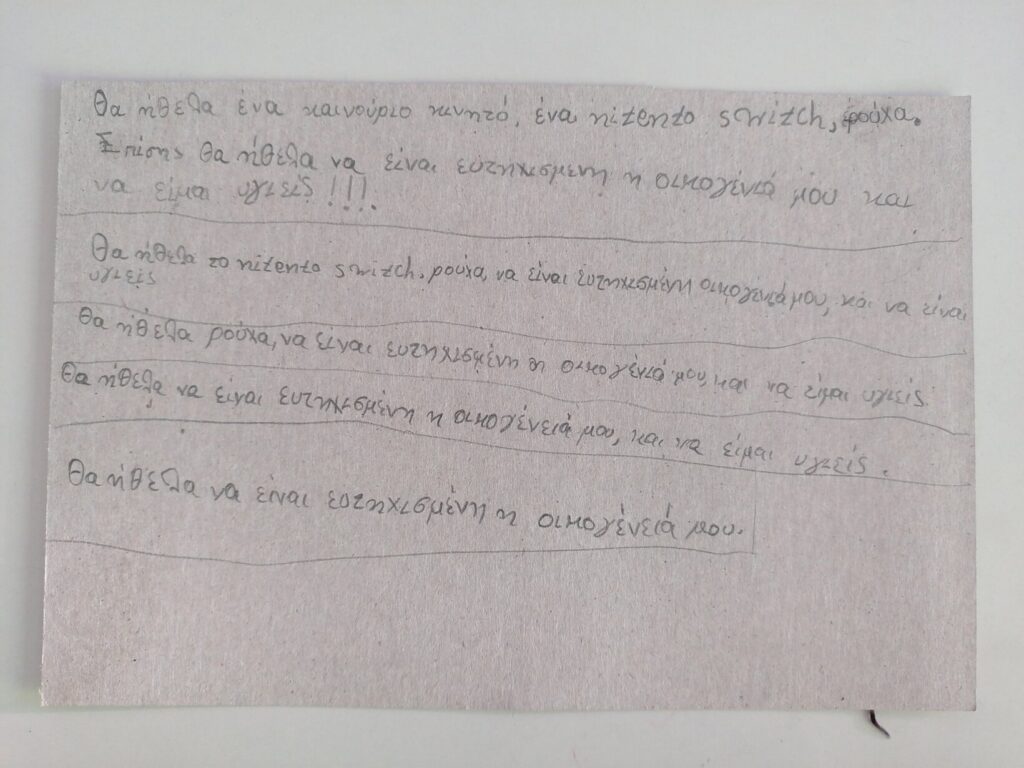 Θα ήθελα ένα καινούριο κινητό, ένα nitento switch, ρούχα.
Επίσης θα ήθελα να είναι ευτηχισμενη η οικογένιά μου και
να είμαι υγιείς!!!!.
Θα ήθελα το nitento switch, ρούχα, να είναι ευτηχισμένη οικογένιά μου, και να είναι
υγιείς
Θα ήθελα ρούχα, να είναι ευτηχισμένη οι οικογένιά μου, και να είμαι υγιείς.
Θα ήθελα να είναι ευτηχισμένη η οικογένειά μου, και να είμαι υγιείς.
Θα ήθελα να είναι ευτηχισμένη η οικογένειά μου.